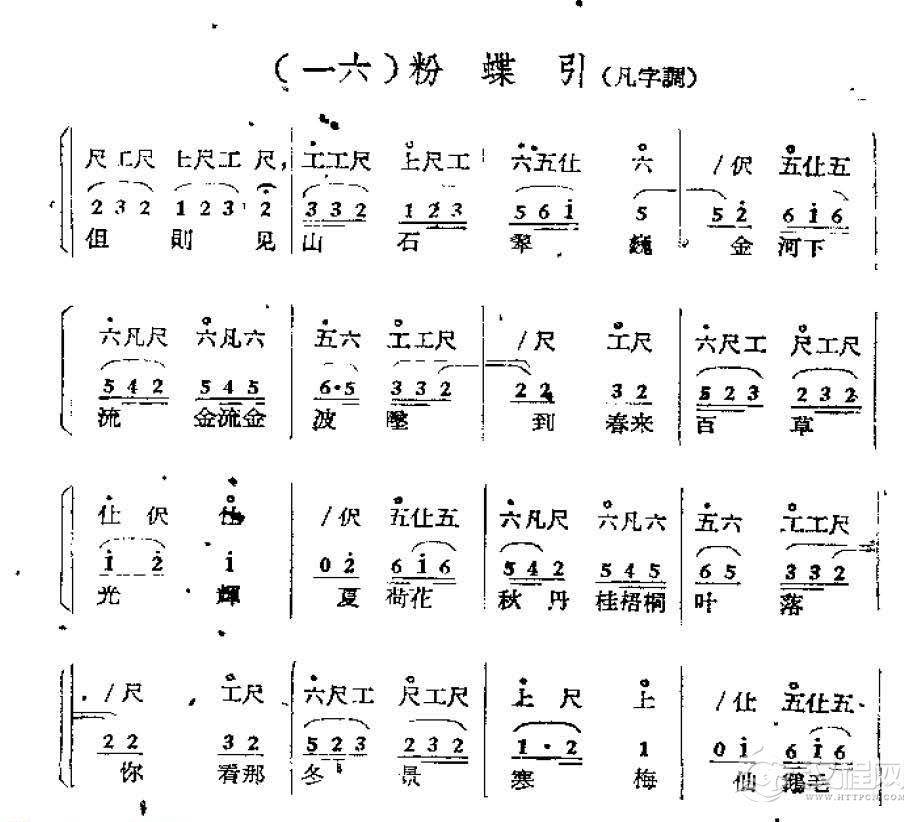 （一六）粉蝶引（凡字調）
尺工尺 上尺工 尺, 工工尺 上尺工 六五仩 六 /伬 五仩五
2 3 2 1 2 3 2 3 3 2 1 2 3 5 6 i 5 5 2 6 i 6
但 則 见 山 石 翠 巍 金 河下
六凡尺 六凡六 五六 工工尺 /尺 工尺 六尺工 尺工尺
5 4 2 5 4 5 6·5 3 3 2 2 2 3 2 5 2 3 2 3 2
流 金流金 波 到 春来 百 草
仩 伬 仩 /伬 五仩五 六凡尺 六凡六 五六 工工尺
i 2 i 0 2 6 i 6 5 4 2 5 4 5 6 5 3 3 2
光 輝 夏 荷花 秋 丹 桂梧桐 叶 落
/尺 工尺 六尺工 尺工尺 上 尺 上 /仩 五仩五
2 2 3 2 5 2 3 2 3 2 1 · 2 1 0 i 6 i 6
你 看那 冬 景 寒 梅 仙 鵝毛
WWW.HTTPCN.COM